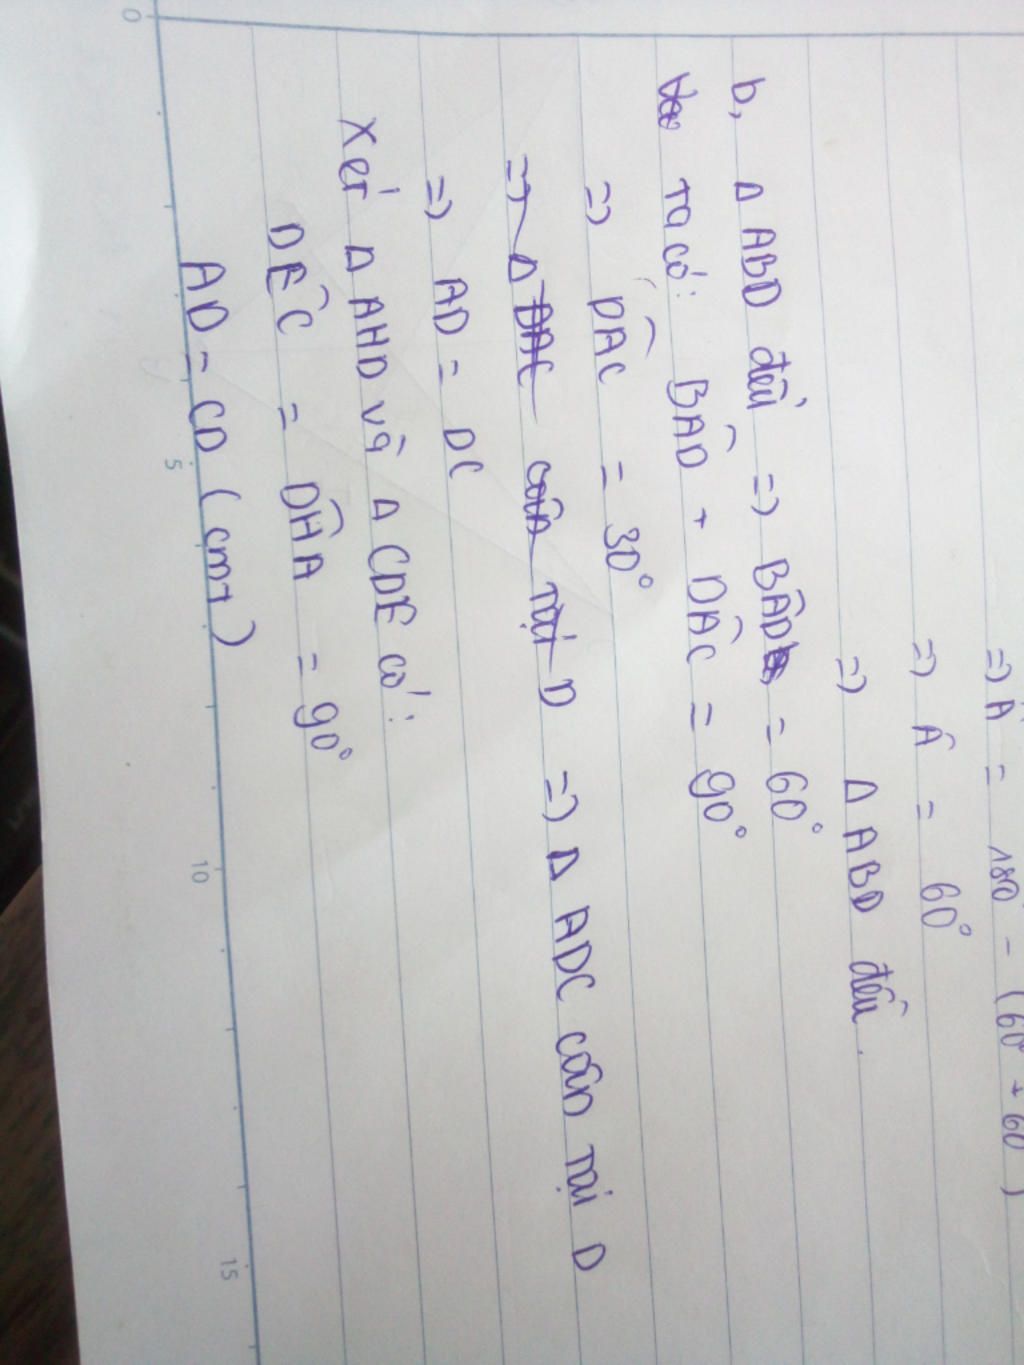 => Â = 180° - (60° + 60°)
=> Â = 60°
=> Δ ABD đều.
b, Δ ABD đều => BÂD = 60°
Ta có: BÂD + DÂC = 90°
=> DÂC = 30°
=> Δ DAC cân tại D => Δ ADC cân tại D
=> AD = DC
Xét Δ AHD và Δ CDE có:
DÊC = DĤA = 90°
AD = CD (cmt)
0 5 10 15